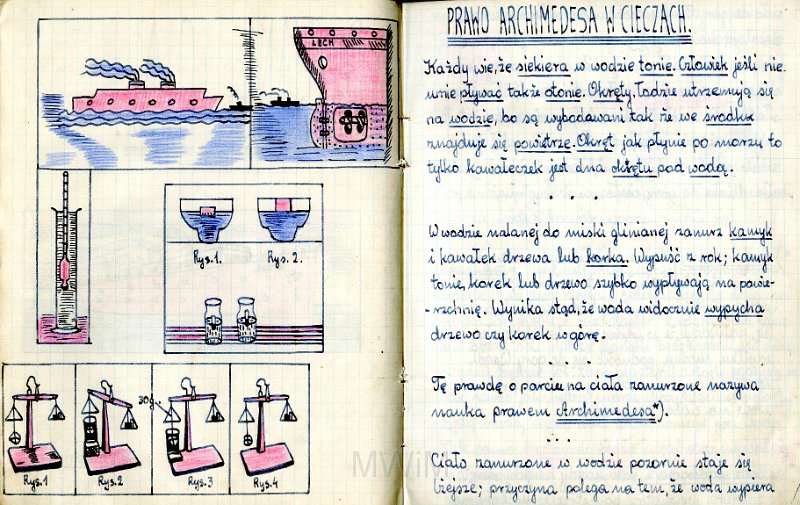 LECH
Rys.1.
Rys. 2.
30g.
Rys.1
Rys.2
Rys.3
Rys.4
PRAWO ARCHIMEDESA W CIECZACH.
Każdy wie, że siekiera w wodzie tonie. Człowiek jeśli nie
umie pływać także otonie. Okręty, ładzie utrzymują się
na wodzie, bo są wybudawani tak że we środku
znajduje się powietrze. Okręt jak płynie po morzu to
tylko kawałeczek jest dna okrętu pod wodą.
W wodzie nalanej do miski glinianej zanurz kamyk
i kawałek drzewa lub korka. Wypuść z rok; kamyk
tonie, korek lub drzewo szybko wypływają na powie-
-rzchnię. Wynika stąd, że woda widocznie wypycha
drzewo czy korek w górę.
Tę prawdę o parcie na ciała zanurzone nazywa
nauka prawem Archimedesa*).
Ciało zanurzone w wodzie pozornie staje się
lżejsze; przyczyna polega na tem, że woda wypiera